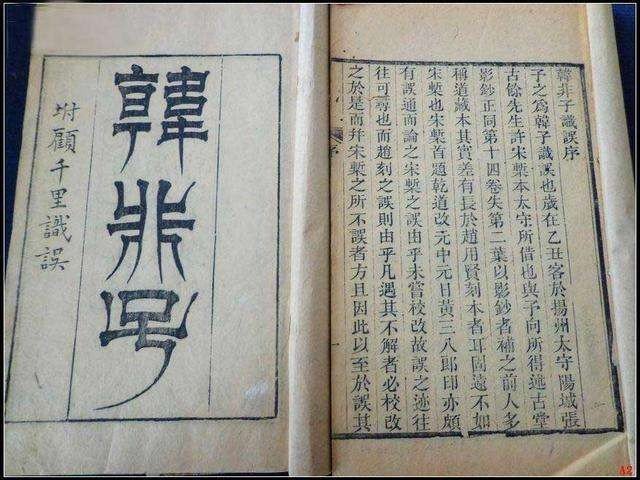 韓非子
坿顧千里識誤
韓非子識誤序
予之爲韓子識誤也歲在乙丑客於揚州太守陽城張
古餘先生許宋槧本太守所借也與予向所得述古堂
影鈔正同第十四卷失第二葉以影鈔者補之前人多
稱道藏本其實差有長於趙用賢刻本者耳固遠不如
宋槧也宋槧首題乾道改元中元日黃三八郎印亦頗
有誤通而論之宋槧之誤由乎未嘗校改故誤之迹往
往可尋也而趙刻之誤則由乎凡遇其不解者必校改
之於是而幷宋槧之所不誤者方且因此以至於誤其
序
一
A2